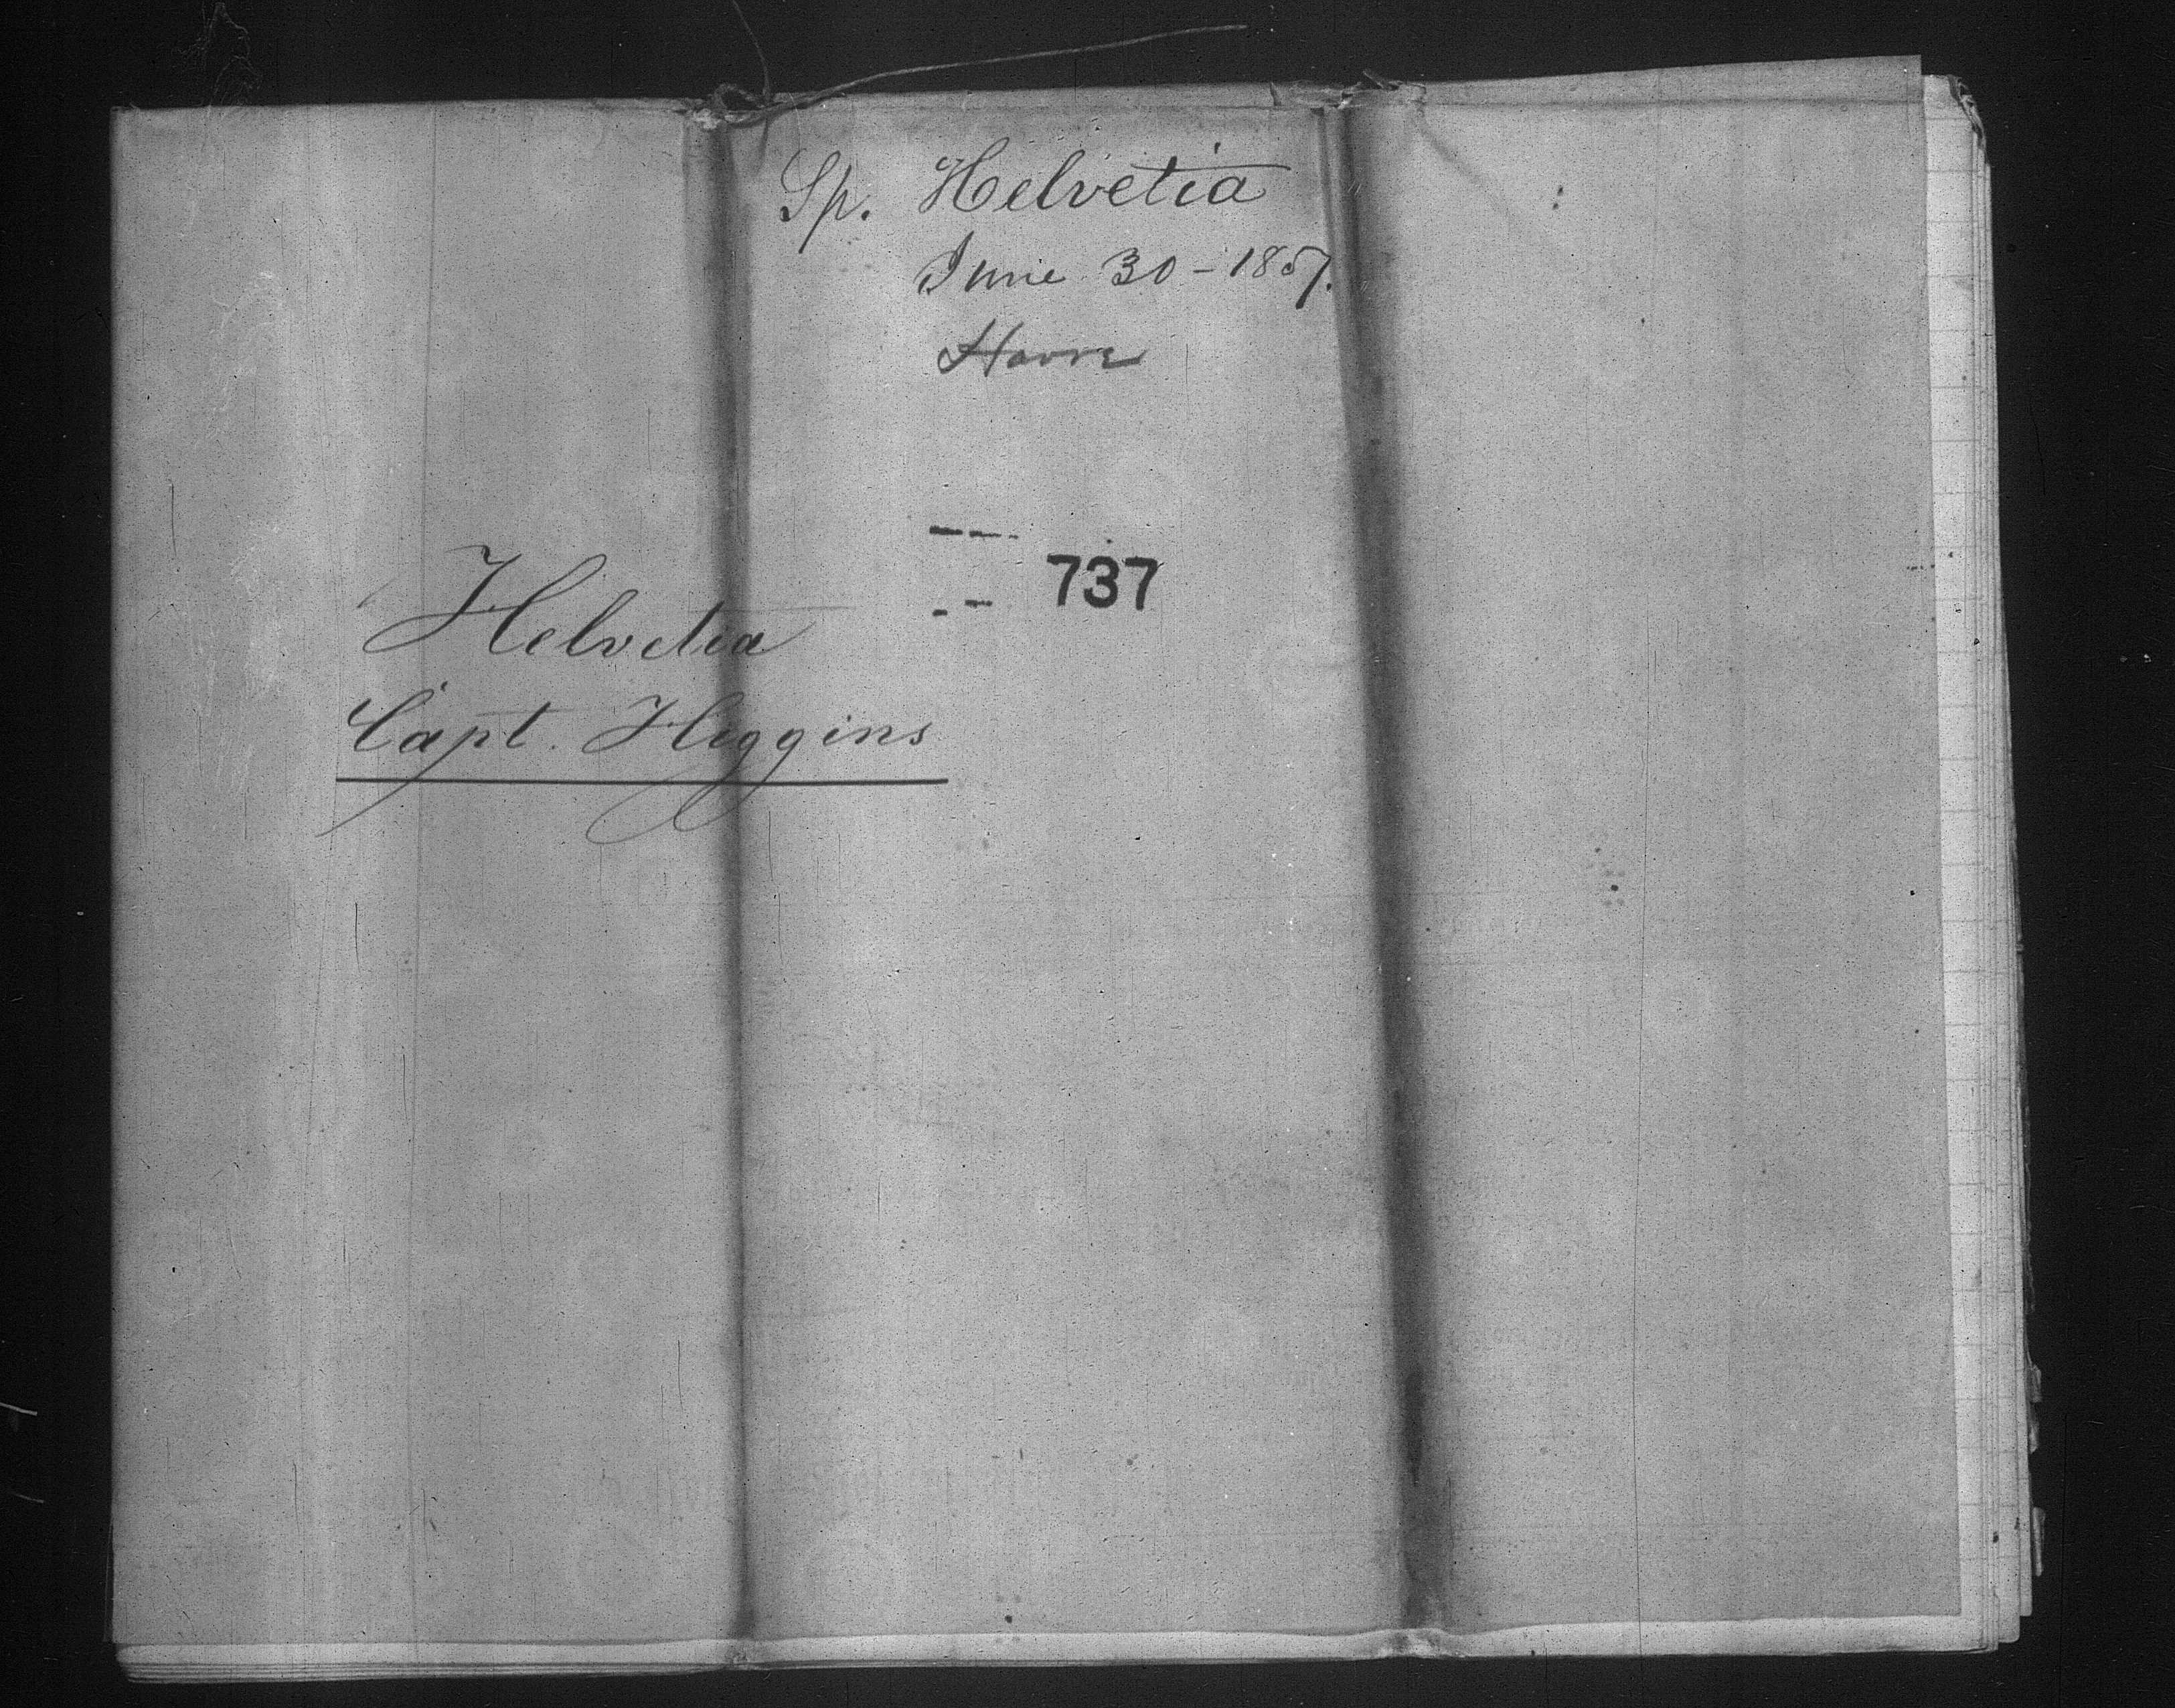 Sp. Helvetia
June 30 - 1857.
Havre
737
Helvetia
Capt. Higgins